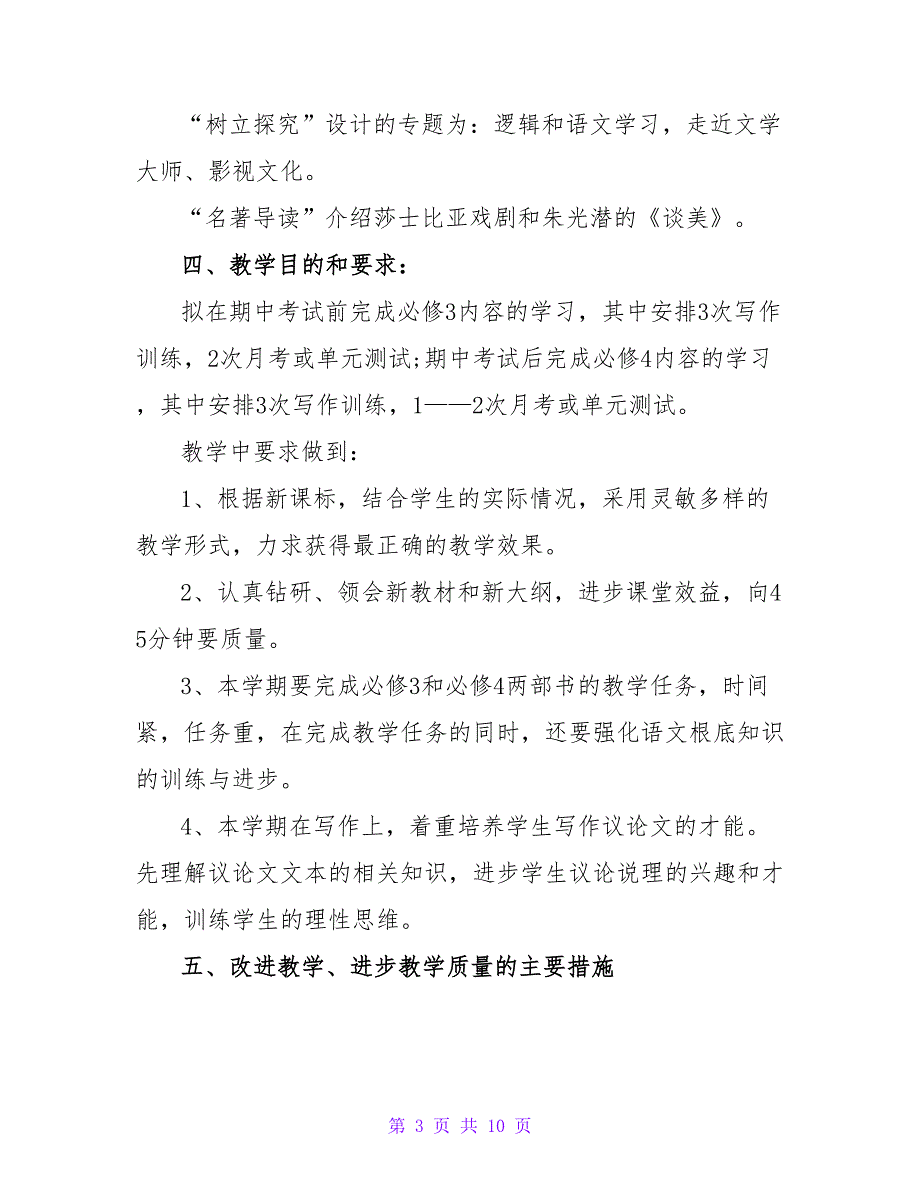 “树立探究”设计的专题为：逻辑和语文学习，走近文学
大师、影视文化。
“名著导读”介绍莎士比亚戏剧和朱光潜的《谈美》。
四、教学目的和要求：
拟在期中考试前完成必修3内容的学习，其中安排3次写作
训练，2次月考或单元测试;期中考试后完成必修4内容的学习
，其中安排3次写作训练，1——2次月考或单元测试。
教学中要求做到：
1、根据新课标，结合学生的实际情况，采用灵敏多样的
教学形式，力求获得最正确的教学效果。
2、认真钻研、领会新教材和新大纲，进步课堂效益，向4
5分钟要质量。
3、本学期要完成必修3和必修4两部书的教学任务，时间
紧，任务重，在完成教学任务的同时，还要强化语文根底知识
的训练与进步。
4、本学期在写作上，着重培养学生写作议论文的才能。
先理解议论文文本的相关知识，进步学生议论说理的兴趣和才
能，训练学生的理性思维。
五、改进教学、进步教学质量的主要措施
第 3 页 共 10 页